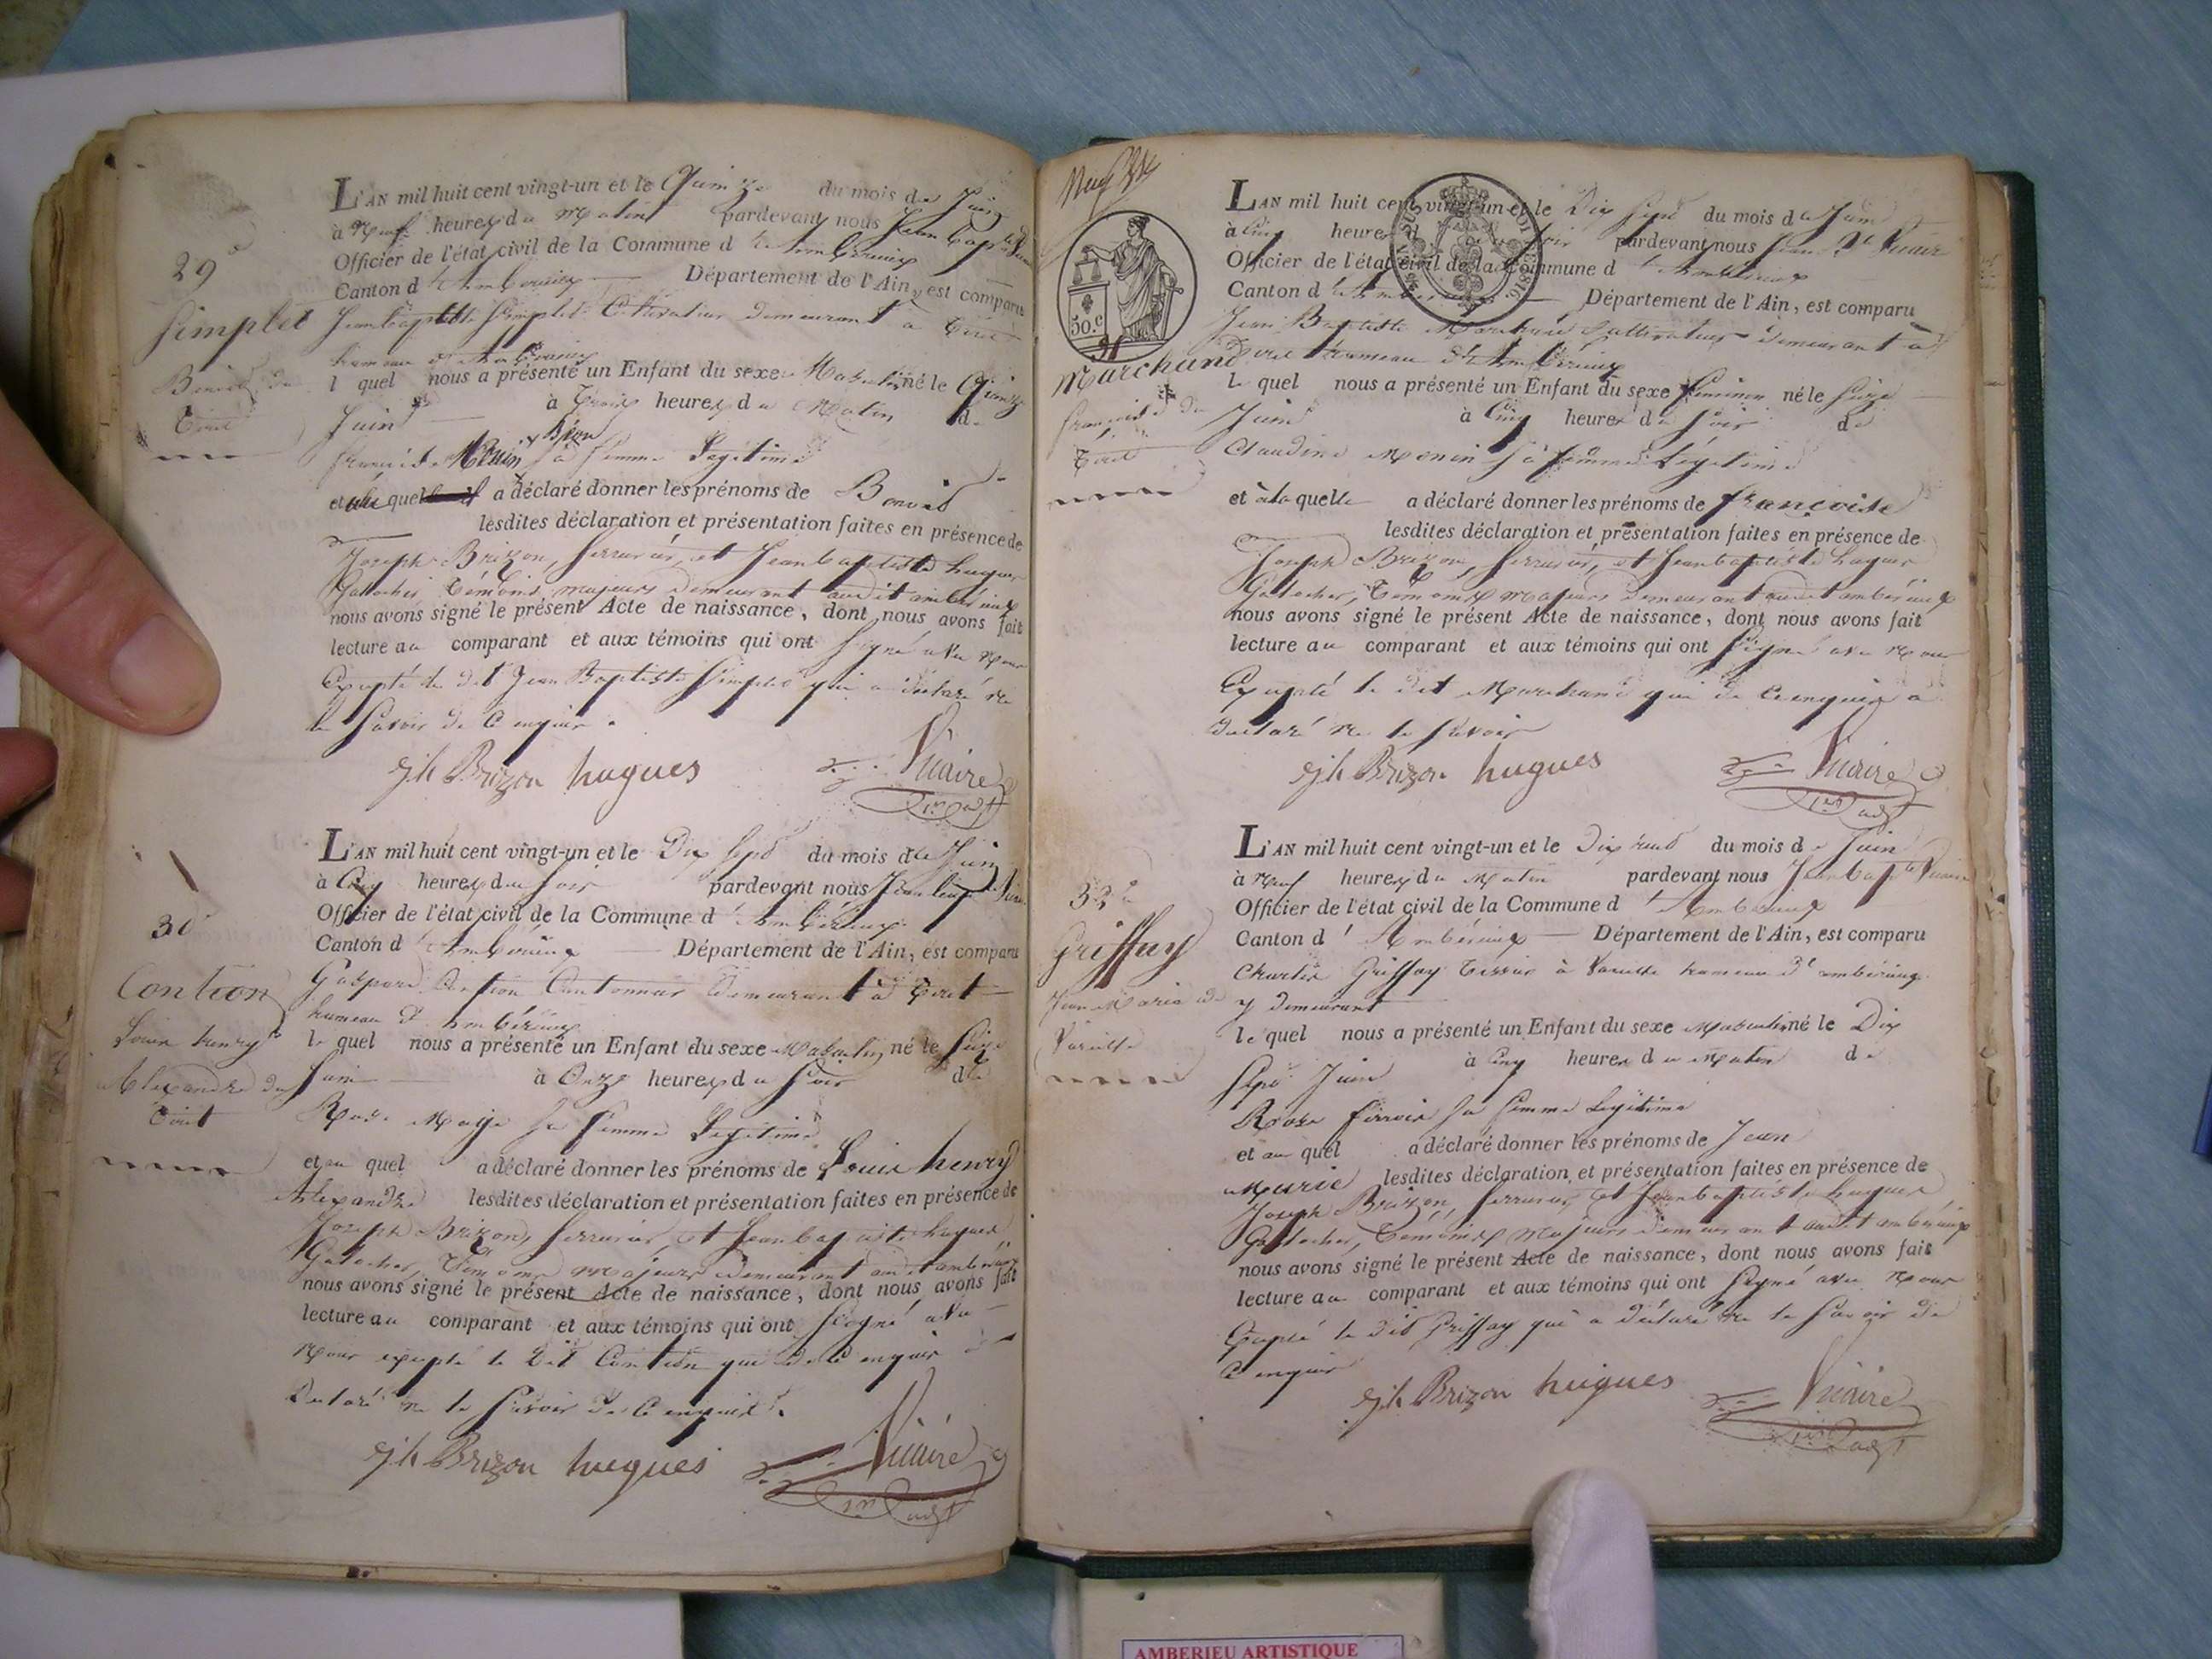 29e
Simplet
Benoit de
Tiret
L'AN mil huit cent vingt-un et le Quinze du mois de Juin
à neuf heures du Matin pardevant nous Jean Bapte
Officier de l'état civil de la Commune d'Ambérieux
Canton d'Ambérieux Département de l'Ain, est comparu
Jean baptiste Simplet Cultivateur demeurant à Tiret
hameau d'Ambérieux
lequel nous a présenté un Enfant du sexe Masculin né le Quinze
Juin à Trois heures du Matin de
sa femme Légitime
et au quel a déclaré donner les prénoms de Benoit
lesdites déclaration et présentation faites en présence de
Joseph Brizon, serrurier, et Jean baptiste hugues
Galocher, Témoins majeurs demeurant audit ambérieux
nous avons signé le présent Acte de naissance, dont nous avons fait
lecture au comparant et aux témoins qui ont Signé avec Nous
Excepté le dit Jean Baptiste Simplet qui a déclaré ne
le Savoir de Ce enquis.
jh Brizon hugues Vicaire
1er adjt
30e
Contion
Louis henry
Alexandre de
Tiret
L'AN mil huit cent vingt-un et le Dix Sept du mois de Juin
à Cinq heures du Soir pardevant nous Jean bapte
Officier de l'état civil de la Commune d'Ambérieux
Canton d'Ambérieux Département de l'Ain, est comparu
Gaspard Contion Cantonnier demeurant à Tiret
hameau d'ambérieux
le quel nous a présenté un Enfant du sexe Masculin né le Seize
Juin à Onze heures du Soir de
Rose sa femme Légitime
et au quel a déclaré donner les prénoms de Louis henry
Alexandre lesdites déclaration et présentation faites en présence de
Joseph Brizon, serrurier, et Jean baptiste hugues,
Galocher, Témoins majeurs demeurant audit ambérieux
nous avons signé le présent Acte de naissance, dont nous avons fait
lecture au comparant et aux témoins qui ont Signé avec
Nous excepté le Dit Contion qui de Ce enquis a
Déclaré ne le Savoir de Ce enquis.
jh Brizon hugues Vicaire
1er adjt
50.c
31
Marchand
françoise de
Tiret
L'AN mil huit cent vingt-un et le Dix Sept du mois de Juin
à Cinq heures du Soir pardevant nous Jean Bte Vicaire
Officier de l'état civil de la Commune d'Ambérieux
Canton d'Ambérieux Département de l'Ain, est comparu
Jean Baptiste Marchand Cultivateur demeurant à
Tiret hameau d'Ambérieux
le quel nous a présenté un Enfant du sexe féminin né le Seize
Juin à Cinq heures du Soir de
Claudine Monin sa femme Légitime
et à la quelle a déclaré donner les prénoms de françoise
lesdites déclaration et présentation faites en présence de
Joseph Brizon, serrurier, et Jean baptiste hugues
Galocher, Témoins majeurs demeurant audit ambérieux
nous avons signé le présent Acte de naissance, dont nous avons fait
lecture au comparant et aux témoins qui ont Signé avec Nous
Excepté le dit Marchand qui de Ce enquis a
déclaré ne le Savoir
jh Brizon hugues Vicaire
1er adjt
32e
Griffay
Jean Marie de
Vareille
L'AN mil huit cent vingt-un et le Dix huit du mois de Juin
à neuf heures du Matin pardevant nous Jean bapte Vicaire
Officier de l'état civil de la Commune d'Ambérieux
Canton d'Ambérieux Département de l'Ain, est comparu
Charles Griffay Tissier à Vareille hameau d'ambérieux
y demeurant
le quel nous a présenté un Enfant du sexe Masculin né le Dix
Sept Juin à Cinq heures du Matin de
Rose sa femme Légitime
et au quel a déclaré donner les prénoms de Jean
Marie lesdites déclaration et présentation faites en présence de
Joseph Brizon, serrurier, et Jean baptiste hugues
Galocher, Témoins majeurs demeurant audit ambérieux
nous avons signé le présent Acte de naissance, dont nous avons fait
lecture au comparant et aux témoins qui ont Signé avec Nous
Excepté le dit Griffay qui a déclaré ne le Savoir de
Ce enquis
jh Brizon hugues Vicaire
1er adjt
AMBERIEU ARTISTIQUE